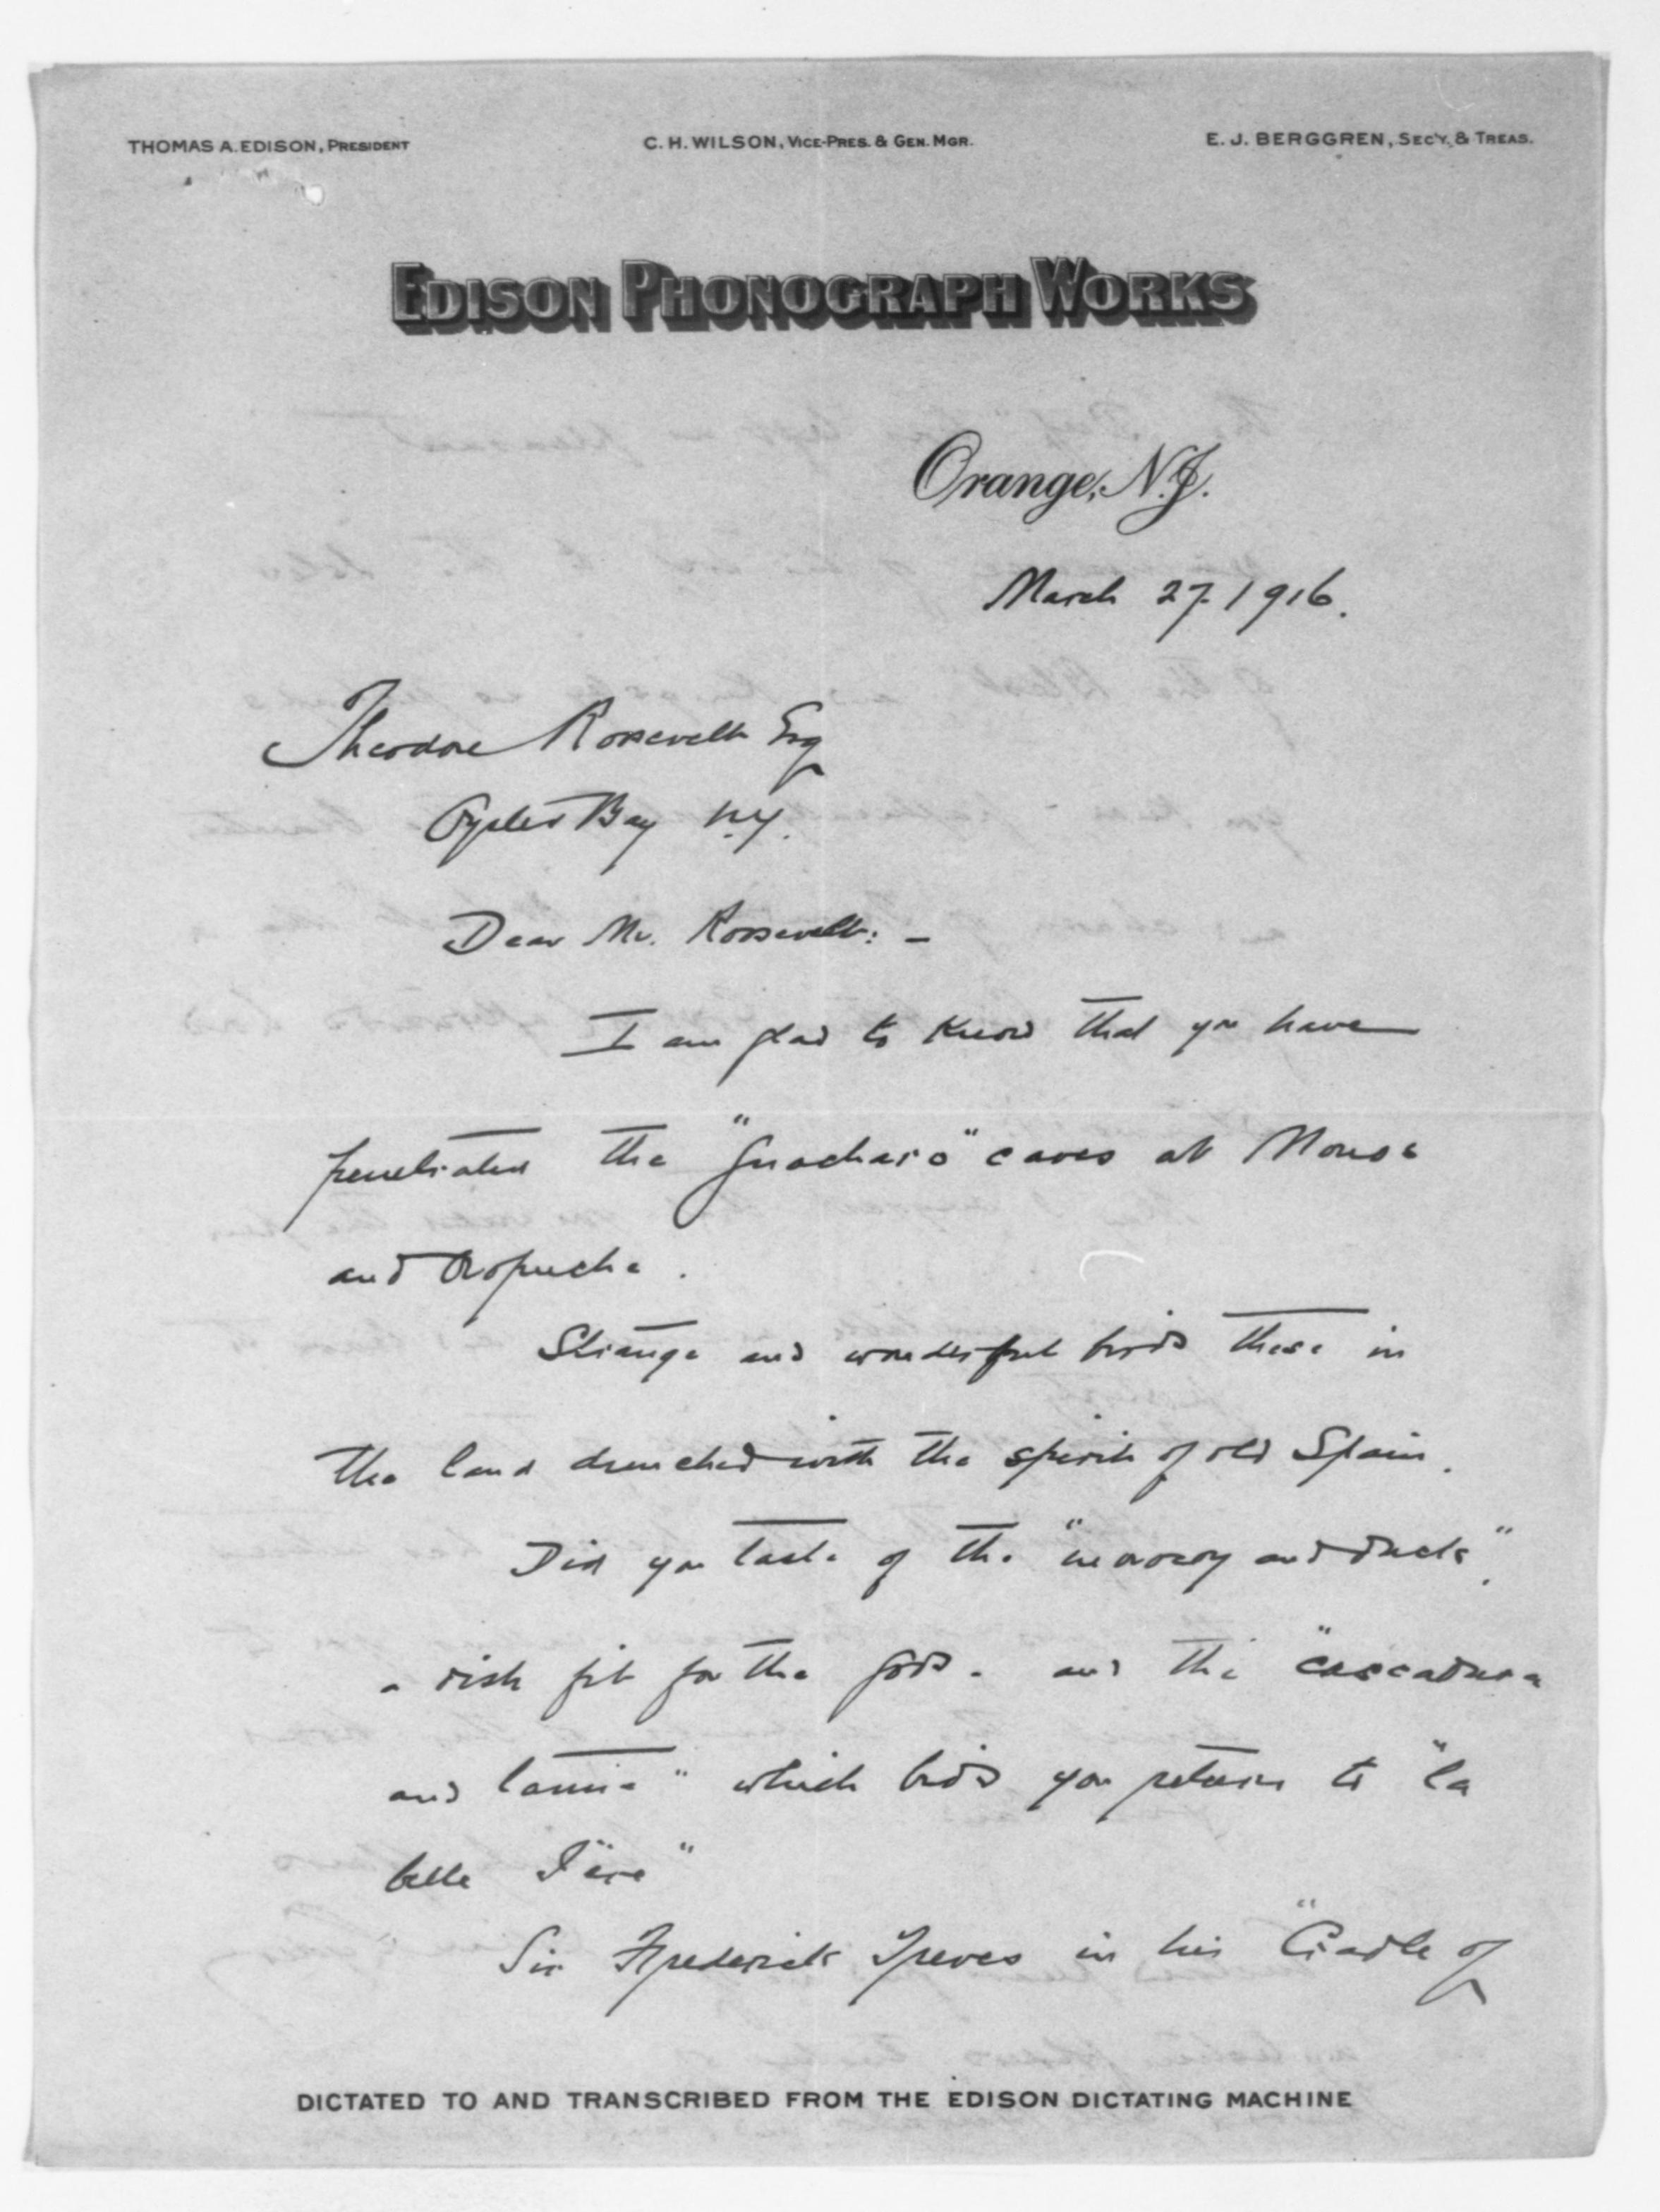 THOMAS A. EDISON, PRESIDENT
C. H. WILSON, VICE-PRES. & GEN. MGR.
E. J. BERGGREN, SEC'Y. & TREAS.
EDISON PHONOGRAPH WORKS
Orange, N.J.
March 27. 1916.
Theodore Roosevelt Esq
Oyster Bay N.Y.
Dear Mr. Roosevelt: -
I am glad to know that you have
penetrated the "Guacharo" caves at Monos
and Oropuche.
Strange and wonderful birds these in
the land drenched with the spirit of old Spain.
Did you taste of the "and duck",
a dish fit for the gods - and the "cascadura
and" which bids you return to "la
belle Iëre"
Sir Frederick Treves in his "Cradle of
DICTATED TO AND TRANSCRIBED FROM THE EDISON DICTATING MACHINE